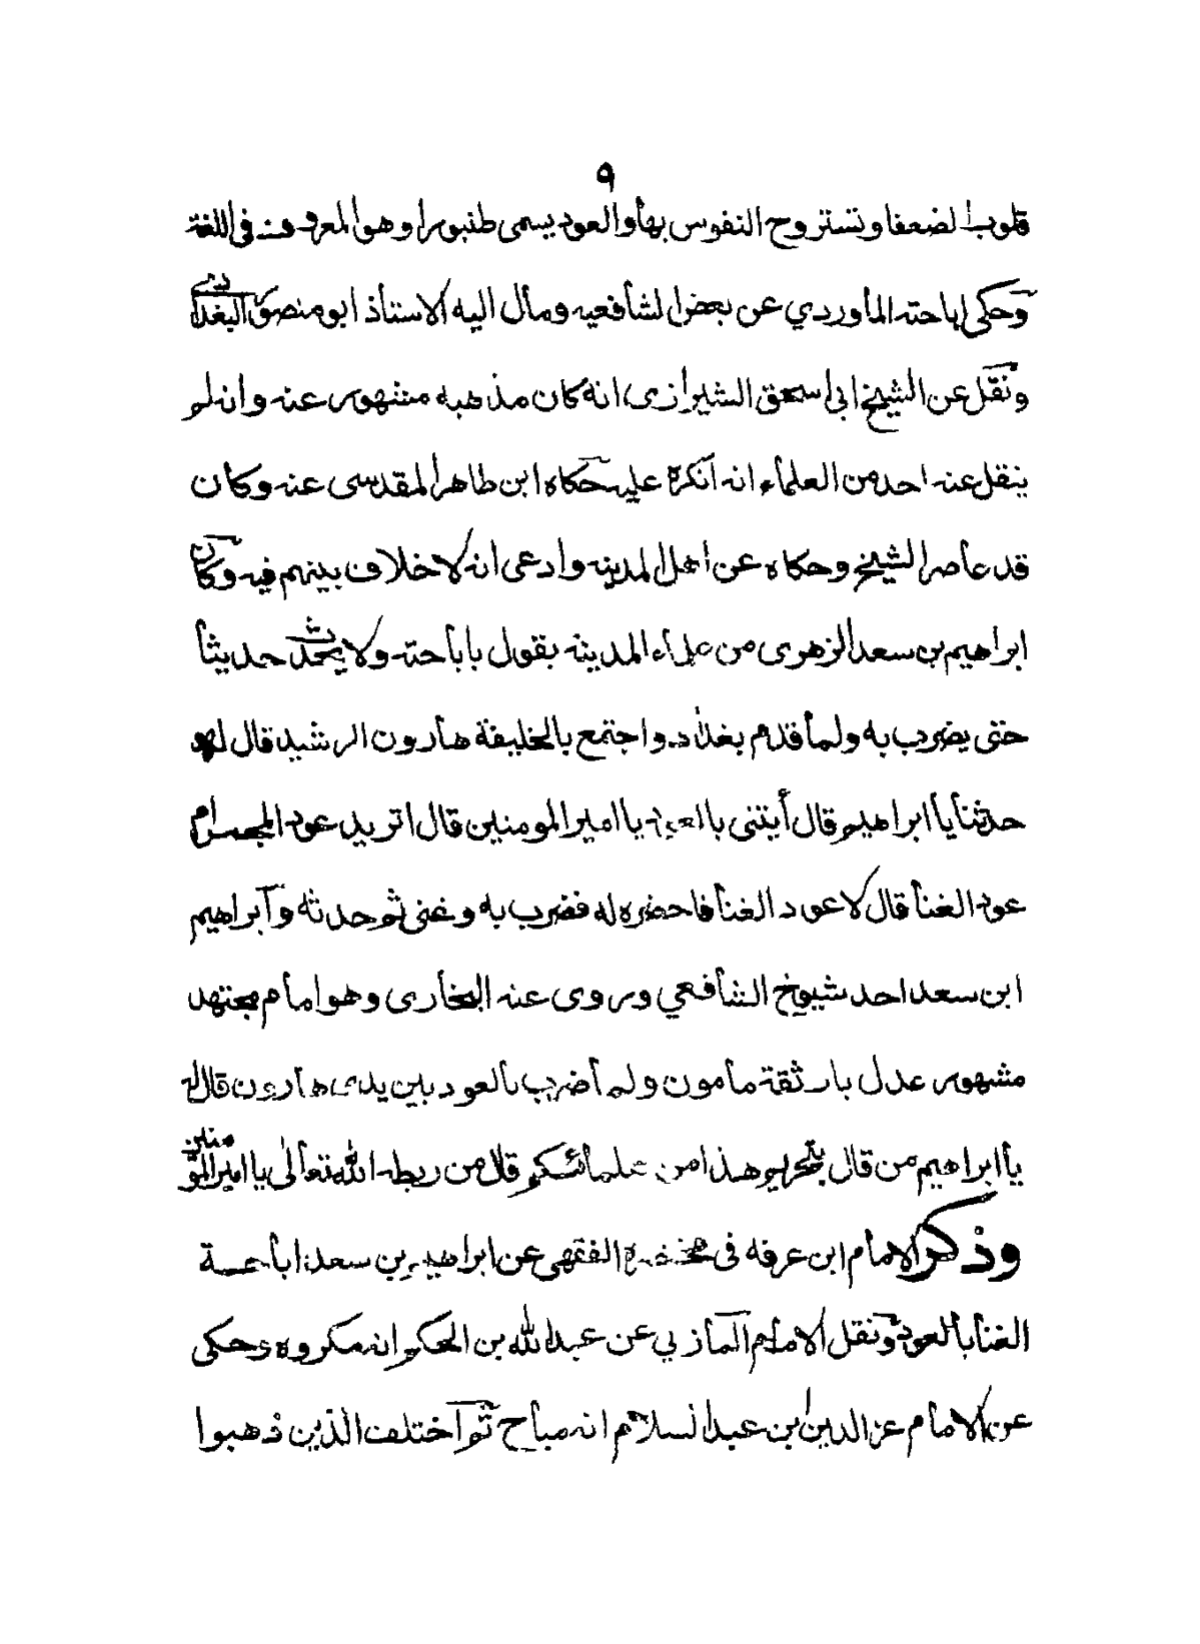 ٩
قلوب الضعفا وتستروح النفوس بها والعود يسمى طنبورا وهو المعروف فى اللغة
وحكى اباحته الماوردي عن بعض الشافعيه ومال اليه الاستاذ ابو منصور البغدادي
ونقل عن الشيخ ابى اسحق الشيرازى انه كان مذهبه مشهور عنه وانه لم
ينقل عنه احد من العلماء انه انكرة عليه حكاه ابن طاهر المقدسى عنه وكان
قد عاصر الشيخ وحكاه عن اهل المدينه وادعى انه لا خلاف بينهم فيه وكان
ابراهيم بن سعد الزهرى من علماء المدينه يقول باباحته ولا يحدث حديثا
حتى يضرب به ولما قدم بغداد واجتمع بالخليفة هارون الرشيد قال له
حدثنا يا ابراهيم قال أيتنى بالعود يا امير المومنين قال اتريد عود المجمر ام
عود الغنا قال لا عود الغنا فاحضره له فضرب به وغنى ثم حدثه وابراهيم
ابن سعد احد شيوخ الشافعي وروى عنه البخارى وهو امام مجتهد
مشهور عدل بار ثقة مامون ولما ضرب بالعود بين يدى هارون قال له
يا ابراهيم من قال بتحريم هذا من علمائكم قال من ربطه الله تعالى يا امير المؤمنين
وذكر الامام ابن عرفه فى مختصره الفقهى عن ابراهيم بن سعد اباحة
الغنا بالعود ونقل الامام المازري عن عبد الله بن الحكم انه مكروه وحكى
عن الامام عز الدين ابن عبد السلام انه مباح ثم اختلف الذين ذهبوا